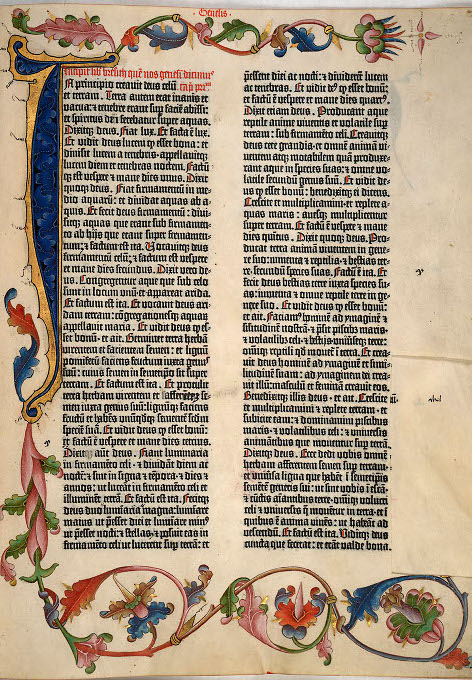 Genesis
Incipit liber bresith quē nos genesim dicimus
In principio creauit deus celū
et terram. Terra autem erat inanis et
vacua: et tenebre erāt sup faciē abissi:
et spiritus dñi ferebatur super aquas.
Dixitqz deus. Fiat lux. Et facta ē lux.
Et vidit deus lucem qp esset bona: et
diuisit lucem a tenebris·appellauitqz
lucem diem et tenebras noctem. Factūqz
est vespere et mane dies vnus. Dixit
quoqz deus. Fiat firmamentū in me-
dio aquarū: et diuidat aquas ab a-
quis. Et fecit deus firmamentū: diui-
sitqz aquas que erant sub firmamen-
to ab hijs que erant super firmamen-
tum: et factum est ita. Vocauitqz deus
firmamentū celū: et factum est vespere
et mane dies secundus. Dixit vero de-
us. Congregentur aque que sub celo
sunt in locum vnū et appareat arida.
Et factum est ita. Et vocauit deus ari-
dam terram: cōgregacionesqz aquarū
appellauit maria. Et vidit deus qp es-
set bonū· et ait. Germinet terra herbā
virentem et facientem semen: et lignū
pomiferū faciens fructum iuxta genus
suū: cuius semen in semetipso sit super
terram. Et factum est ita. Et protulit
terra herbam virentem et facientem se-
men iuxta genus suū: lignūqz faciens
fructū et habēs vnūqdqz sementē scdm
speciem suā. Et vidit deus qp esset bonū:
et factū ē vespere et mane dies tercius.
Dixitqz autē deus. Fiant luminaria
in firmamēto celi· et diuidāt diem ac
noctē: et sint in signa et tēpora· et dies et
annos: ut luceāt in firmamēto celi et
illuminēt terrā. Et factū est ita. Fecitqz
deus duo luminaria magna: luminare
maius ut pesset diei et luminare minus
ut pesset nocti: et stellas· et posuit eas in
firmamēto celi ut lucerent sup terrā: et
pessent diei ac nocti: et diuiderent lucem
ac tenebras. Et vidit deus qp esset bonū:
et factū ē vespere et mane dies quartus.
Dixit etiam deus. Producant aque
reptile anime viuentis et volatile sup
terram: sub firmamēto celi. Creauitqz
deus cete grandia· et omnē animā vi-
uentem atqz motabilem quā produxe-
rant aque in species suas: et omne vo-
latile secundū genus suū. Et vidit de-
us qp esset bonū: benedixitqz eis dicens.
Crescite et multiplicamini· et replete a-
quas maris: auesqz multiplicentur
super terram. Et factū ē vespere et mane
dies quintus. Dixit quoqz deus. Pro-
ducat terra animā viuentem in gene-
re suo: iumenta et reptilia· et bestias ter-
re secundū species suas. Factū ē ita. Et
fecit deus bestias terre iuxta species su-
as: iumenta et omne reptile terre in ge-
nere suo. Et vidit deus qp esset bonū:
et ait. Faciamus hominē ad ymaginē et
similitudinē nostrā· et psit piscibus maris·
et volatilibus celi· et bestijs vniuerseqz terre:
omniqz reptili qd mouet in terra. Et crea-
uit deus hominē ad ymaginē et simi-
litudinē suam: ad ymaginem dei crea-
uit illū: masculū et feminā creauit eos.
Benedixitqz illis deus· et ait. Crescite
et multiplicamini et replete terram· et
subicite eam: et dominamini piscibus
maris· et volatilibus celi: et vniuersis
animātibus que mouentur sup terrā.
Dixitqz deus. Ecce dedi vobis omnē
herbam afferentem semen sup terram·
et vniuersa ligna que habēt in semetipsis
sementē generis sui: ut sint vobis in escā
et cunctis aīantibus terre· omniqz volucri
celi et vniuersis que mouētur in terra· et in
quibus ē anima viuēs: ut habeāt ad
vescendū. Et factū est ita. Viditqz deus
cuncta que fecerat: et erāt valde bona.